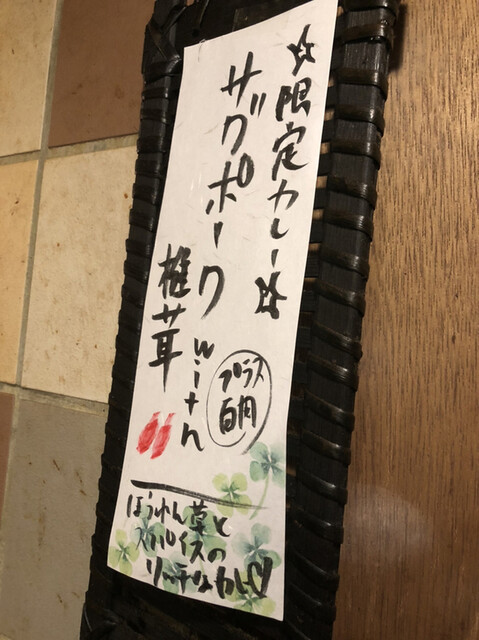 ☆限定カレー☆
ザクポーク with
椎茸
プラス
百円
ほうれん草と
スパイスの
リッチなカレー♡